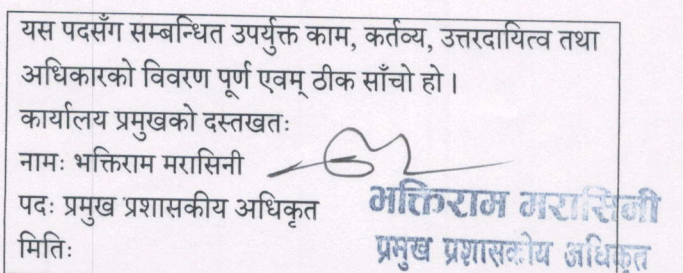 यस पदसँग सम्बन्धित उपर्युक्त काम, कर्तव्य, उत्तरदायित्व तथा
अधिकारको विवरण पूर्ण एवम् ठीक साँचो हो ।
कार्यालय प्रमुखको दस्तखतः
नामः भक्तिराम मरासिनी
पदः प्रमुख प्रशासकीय अधिकृत
मितिः
भक्तिराम मरासिनी
प्रमुख प्रशासकीय अधिकृत